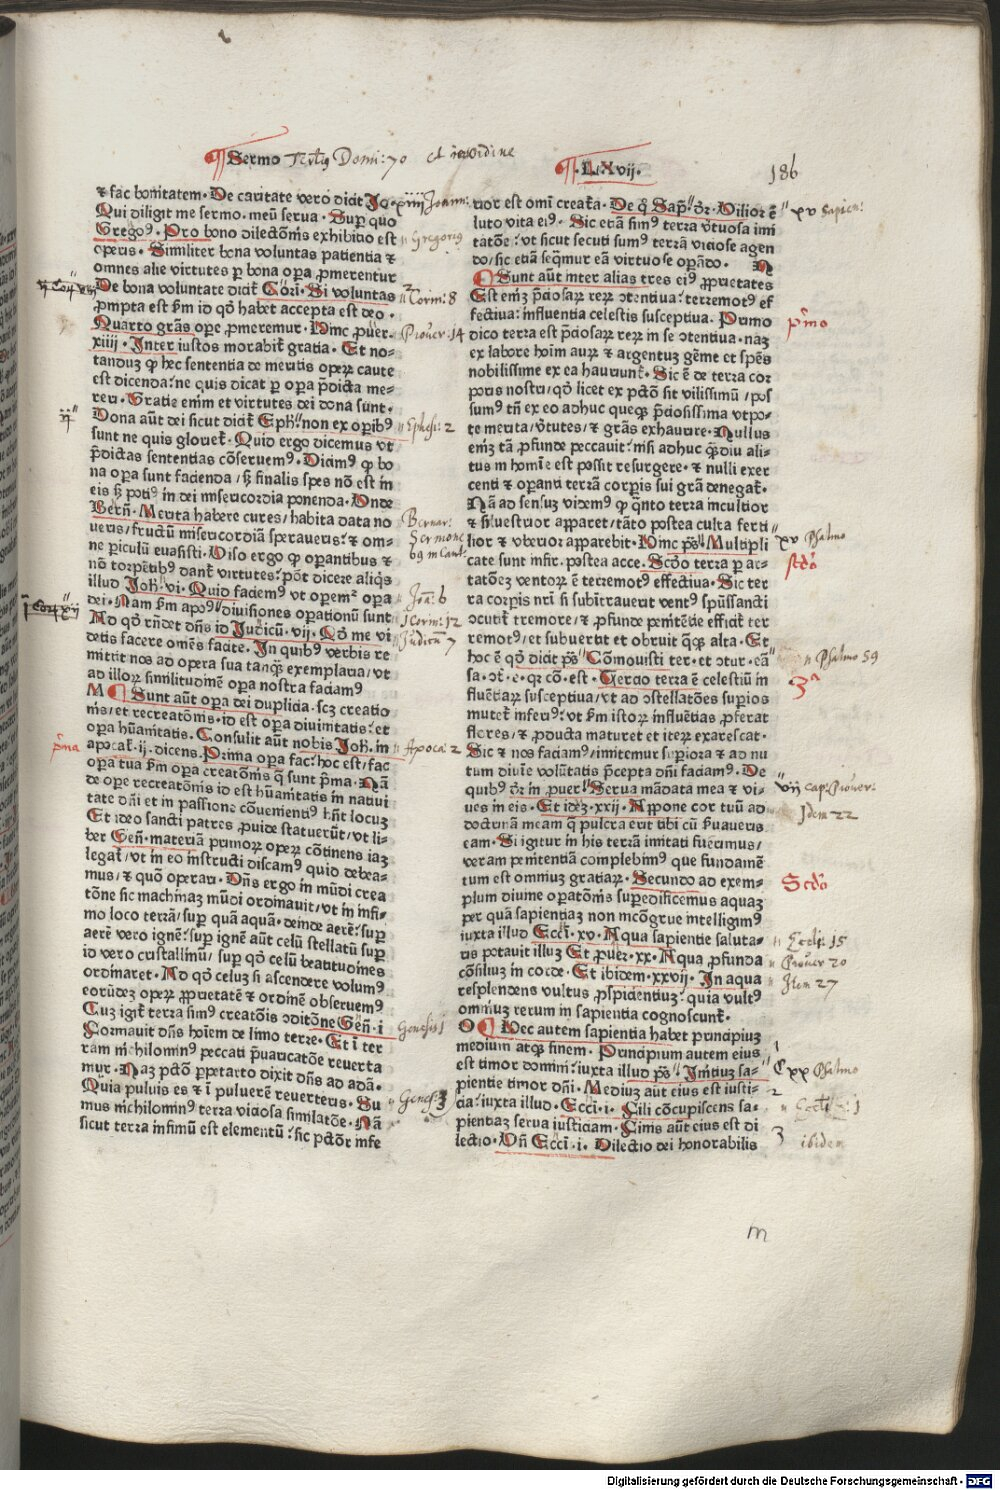 Sermo Domi: 70
.LXvij.
186
⁊ fac bonitatem. De caritate vero dicit Jo.
Qui diligit me sermo. meū serua. Sup quo
Grego⁹. Pro bono dilectōnis exhibitio est
operis. Similiter bona voluntas patientia ⁊
omnes alie virtutes p bona opa ꝓmerentur
De bona voluntate dicit̄ Cōri. Si voluntas
ꝓmpta est s̄m id qd̄ habet accepta est deo.
Quarto grās ope ꝓmeremur. Hinc ꝓuer.
xiiij. Inter iustos morabit̄ gratia. Et no-
tanduꝫ ꝙ hec sententia de meritis opeꝝ caute
est dicenda: ne quis dicat p opa p̄dicta me-
reri. Gratie enim et virtutes dei dona sunt.
Dona aūt dei sicut dicit̄ Eph̄. non ex opib⁹
sunt ne quis gloriet̄. Quid ergo dicemus vt
p̄dictas sententias cōseruem⁹. Dicim⁹ ꝙ bo
na opa sunt facienda / sꝫ finalis spes nō est in
eis sꝫ poti⁹ in dei misericordia ponenda. Vnde
Berñ. Merita habere cures / habita data no
ueris / fructū misericordiā speraueris: ⁊ om-
ne periculū euasisti. Viso ergo ꝙ opantibus ⁊
nō torpētib⁹ dant̄ virtutes: pōt dicere aliq̄s
illud Joh̄. vi. Quid faciem⁹ vt opem² opa
dei. Nam s̄m apo⁹ diuisiones opationū sunt
Ad qd̄ rn̄det dn̄s id Judicū. vij. Qd̄ me vi
detis facere omēs facite. In quib⁹ verbis re
mittit nos ad opera sua tanq̄ꝫ exemplaria / vt
ad illoꝝ similitudinē opa nostra faciam⁹
Sunt aūt opa dei duplicia. scꝫ creatio
nis / et recreatōnis. id est opa diuinitatis: et
opa hūanitatis. Consulit aūt nobis Joh̄. in
apocal̄. ij. dicens. Prima opa fac: hoc est / fac
opa tua s̄m opa creatōnis q̄ sunt p̄ma. Nā
de ope recreatōnis id est hūanitatis in natiui
tate dn̄i et in passione cōuenienti⁹ hn̄t locuꝫ
Et ideo sancti patres ꝓuide statuerūt / vt li-
ber Geñ. materiā primoꝝ opeꝝ cōtinens iaꝫ
legat̄ / vt in eo instructi discam⁹ quid debea-
mus / ⁊ quō operari. Dn̄s ergo in mūdi crea
tōne sic machinaꝫ mūdi ordinauit / vt in infi-
mo loco terrā / sup quā aquā. deinde aerē: sup
aerē vero ignē: sup ignē aūt celū stellatū sup
id vero cristallinū / sup qd̄ celū beatitudines
ordinaret. Ad qd̄ celuꝫ si ascendere volum⁹
eorūdeꝫ opeꝝ ꝓprietatē ⁊ ordinē obseruem⁹
Cuꝫ igit̄ terra sim⁹ creatōis ↄditōne Geñ. i
Formauit dn̄s hoīem de limo terre. Et ī ter
ram nichilomin⁹ peccati p̄uaricatōe reuerta
mur. Naꝫ pctō ppetrato dixit dn̄s ad adā.
Quia puluis es ⁊ ī puluerē reuerteris. Su
mus nichilomin⁹ terra viciosa similatōe. Nā
sicut terra infimū est elementū: sic pctōr infe
rior est omī creat̄a. De q̄ Sap. dr̄. Vilior ē
luto vita ei⁹. Sic etiā sim⁹ terra v̄tuosa imi
tatōe: vt sicut secuti sum⁹ terrā viciose agen
do / sic etiā seq̄mur eā virtuose opādo. N
Sunt aūt inter alias tres ei⁹ ꝓprietates
Est eniꝫ p̄ciosaꝝ reꝝ ↄtentiua: terremot⁹ ef
fectiua: influentia celestis susceptiua. Primo
dico terra est p̄ciosaꝝ reꝝ in se ↄtentiua. naꝫ
ex labore hoīm auꝝ ⁊ argentuꝫ gēme et spēs
nobilissime ex ea hauriunt̄. Sic ē de terra cor
poris nostri / qd̄ licet ex pctō sit vilissimū / pos
sum⁹ tn̄ ex eo adhuc queqꝫ p̄ciosissima vtpo-
te merita / v̄tutes / ⁊ grās exhaurire. Nullus
eniꝫ tā ꝓfunde peccauit: nisi adhuc q̄ꝫdiu ali-
tus in homīe est possit resurgere. ⁊ nulli exer
centi ⁊ operanti terrā corpis sui grā denegat̄.
Nā ad sensuꝫ videm⁹ ꝙ q̄nto terra incultior
⁊ siluestrior apparet / tāto postea culta ferti
lior ⁊ vberior apparebit. Hinc ps̄. Multipli
cate sunt infir. postea acce. Scd̄o terra p ac-
tatōeꝫ ventoꝝ ē terremot⁹ effectiua. Sic ter
ra corpis nr̄i si subītrauerit vent⁹ spūssancti
ↄcutit̄ tremore / ⁊ ꝓfunde penitētie efficit̄ ter
remot⁹ / et subuertit et obruit quęqꝫ alta. Et
hoc ē qd̄ dicit ps̄. Cōmouisti ter. et ↄtur. eā
sa. ↄt̄. e. qꝛ cō. est. Tercio terra ē celestiū in
fluētiaꝝ susceptiua / vt ad ↄstellatōes supios
mutet̄ inferi⁹: vt s̄m istoꝝ influētias ꝓferat
flores / ⁊ ꝓducta maturet et iteꝝ exarescat.
Sic ⁊ nos faciam⁹ / imitemur supiora ⁊ ad nu
tum diuīe volūtatis p̄cepta dn̄i faciam⁹. De
quib⁹ dr̄ in ꝓuer. Serua mādata mea ⁊ vi-
ues in eis. Et ideꝫ. xxij. Appone cor tuū ad
doctrinā meam q̄ pulcra erit tibi cū s̄uaueris
eam. Si igitur in his terrā imitati fuerimus /
veram penitentiā complebim⁹ que fundamē
tum est omniuꝫ gratiaꝝ. Secundo ad exem-
plum diuine opatōnis supedificemus aquaꝫ
per quā sapientiaꝫ non incōgrue intelligim⁹
iuxta illud Eccī. xv. Aqua sapientie saluta-
ris potauit illuꝫ Et ꝓuer. xx. Aqua ꝓfunda
cōsiliuꝫ in corde. Et ibidem. xxvij. In aqua
resplendens vultus ꝓspicientiuꝫ: quia vult⁹
omniuꝫ rerum in sapientia cognoscunt̄.
Hec autem sapientia habet principiuꝫ
medium atqꝫ finem. Principium autem eius
est timor domini: iuxta illud ps̄. Initiuꝫ sa-
pientie timor dn̄i. Mediuꝫ aūt eius est iusti-
cia: iuxta illud. Eccī. i. Fili cōcupiscens sa-
pientiaꝫ serua iusticiam. Finis aūt eius est di
lectio. Vn̄ Eccī. i. Dilectio dei honorabilis
Gregorius
2 Corin: 8
Prouer. 14
Ephesi: 2
Bernar:
Sermone
69 in Cant:
Joan: 6
1 Corin: 12
Judicū 7
p̄ma
Apoca: 2
Genesis 1
Genes: 3
xv Sapien:
p̄mo
xv Psalmo
scd̄o
Psalmo 59
3ᵃ
vij cap: Prouer:
Idem 22
Scd̄o
Eccli: 15
Prouer 20
Item 27
1
Cxx Psalmo
2
Eccli: 1
3
ibidem
m
Digitalisierung gefördert durch die Deutsche Forschungsgemeinschaft - DFG